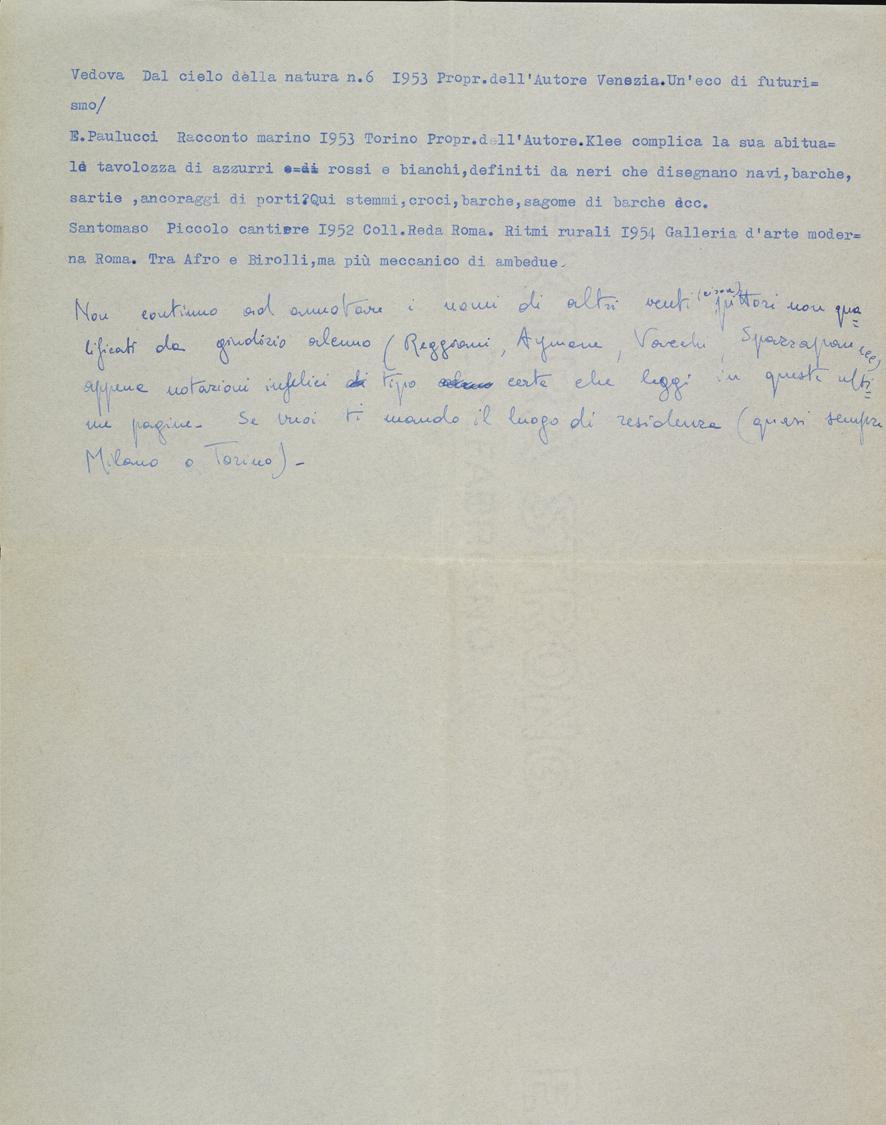 Vedova Dal cielo della natura n.6 I953 Propr.dell'Autore Venezia.Un'eco di futuri=
smo/
E.Paulucci Racconto marino I953 Torino Propr.dell'Autore.Klee complica la sua abitua=
le tavolozza di azzurri e=di rossi e bianchi,definiti da neri che disegnano navi,barche,
sartie ,ancoraggi di porti?Qui stemmi,croci,barche,sagome di barche ecc.
Santomaso Piccolo cantiere I952 Coll.Reda Roma. Ritmi rurali I954 Galleria d'arte moder=
na Roma. Tra Afro e Birolli,ma più meccanico di ambedue.
Non continuo ad annotare i nomi di altri venti (circa) pittori non qua=
lificati da giudizio alcuno (Reggiani, Aymone, Vacchi, Spazzapan ecc,
appena notazioni infelici di tipo alcuno certe che leggi in queste ulti=
me pagine. Se vuoi ti mando il luogo di residenza (quasi sempre
Milano o Torino) -
FABRIANO